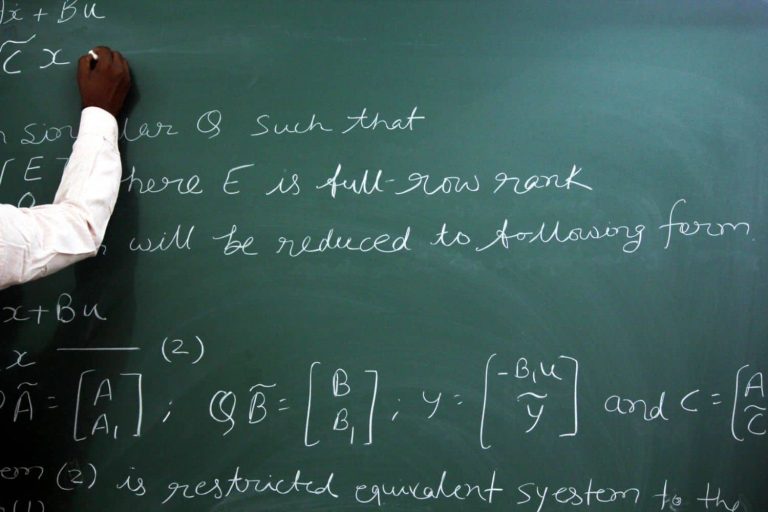 ẋ + Bu
C̃ x
Q such that
E here E is full-row rank
will be reduced to following form.
x + Bu
x —— (2)
Ã = [A A₁] ; Q B̃ = [B B₁] ; y = [-B₁u ỹ] and C = [A C̃
(2) is restricted equivalent syestem to the
(1)